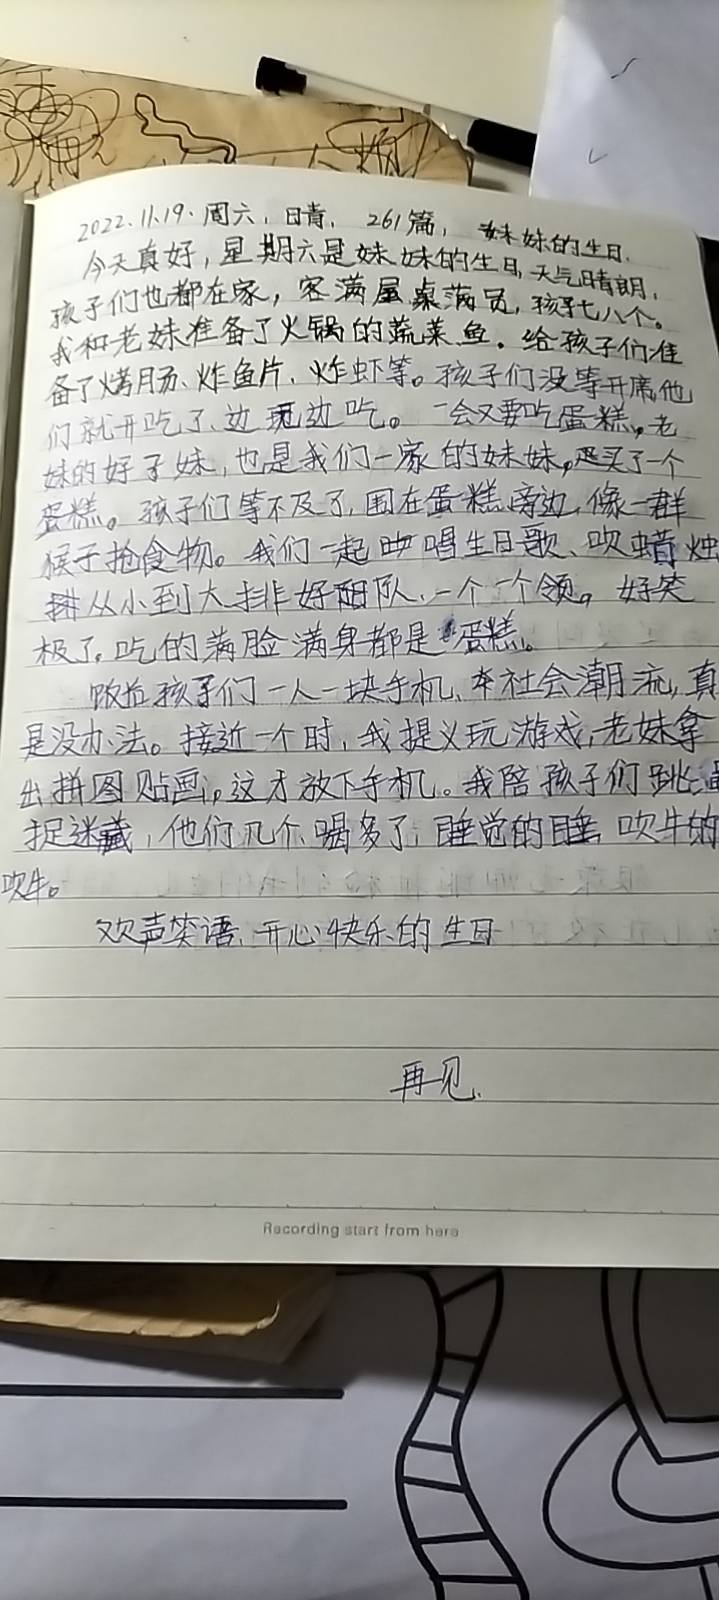 2022.11.19.周六，日青，261篇，妹妹的生日.
今天真好，星期六是妹妹的生日,天气晴朗,
孩子们也都在家，客满屋桌满员，孩子七八个。
我和老妹准备了火锅的蔬菜鱼。给孩子们准
备了烤肠、炸鱼片、炸虾等。孩子们没等开席他
们就开吃了、边玩边吃。一会又要吃蛋糕。老
妹的好子妹，也是我们一家的妹妹，买了一个
蛋糕。孩子们等不及了,围在蛋糕旁边,像一群
猴子抢食物。我们一起唱生日歌、吹蜡烛
排从小到大排好队、一个一个领。好笑
极了,吃的满脸满身都是蛋糕。
饭后孩子们一人一块手机、社会潮流，真
是没办法。接近一个时，我提义玩游戏，老妹拿
出拼图贴画，这才放下手机。我陪孩子们跳
捉迷藏，他们几个喝多了，睡觉的睡，吹牛的
吹牛。
欢声笑语、开心快乐的生日
再见.
Recording start from here